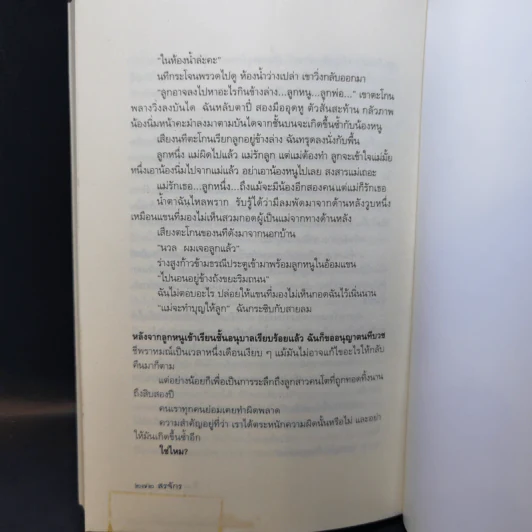 “ในห้องน้ำล่ะคะ”
นทีกระโจนพรวดไปดู ห้องน้ำว่างเปล่า เขาวิ่งกลับออกมา
“ลูกอาจลงไปหาอะไรกินข้างล่าง…ลูกหนู…ลูกพ่อ…” เขาตะโกน
พลางวิ่งลงบันได ฉันหลับตาปี๋ สองมืออุดหู ตัวสั่นสะท้าน กลัวภาพ
น้องนิ่มหน้าคะมำลงมาตามบันไดจากชั้นบนจะเกิดขึ้นซ้ำกับน้องหนู
เสียงนทีตะโกนเรียกลูกอยู่ข้างล่าง ฉันทรุดลงนั่งกับพื้น
ลูกหนึ่ง แม่ผิดไปแล้ว แม่รักลูก แต่แม่ต้องทำ ลูกจะเข้าใจแม่มั้ย
หนึ่งเอาน้องนิ่มไปจากแม่แล้ว อย่าเอาน้องหนูไปเลย สงสารแม่เถอะ
แม่รักเธอ…ลูกหนึ่ง…ถึงแม้จะมีน้องอีกสองคน แต่แม่ก็รักเธอ
น้ำตาฉันไหลพราก รับรู้ได้ว่ามีลมพัดมาจากด้านหลังวูบหนึ่ง
เหมือนแขนที่มองไม่เห็นสวมกอดผู้เป็นแม่จากทางด้านหลัง
เสียงตะโกนของนทีดังมาจากนอกบ้าน
“นวล ผมเจอลูกแล้ว”
ร่างสูงก้าวข้ามธรณีประตูเข้ามาพร้อมลูกหนูในอ้อมแขน
“ไปนอนอยู่ข้างถังขยะริมถนน”
ฉันไม่ตอบอะไร ปล่อยให้แขนที่มองไม่เห็นกอดฉันไว้เนิ่นนาน
“แม่จะทำบุญให้ลูก” ฉันกระซิบกับสายลม
หลังจากลูกหนูเข้าเรียนชั้นอนุบาลเรียบร้อยแล้ว ฉันก็ขออนุญาตนทีบวช
ชีพราหมณ์เป็นเวลาหนึ่งเดือนเงียบ ๆ แม้มันไม่อาจแก้ไขอะไรให้กลับ
คืนมาก็ตาม
แต่อย่างน้อยก็เพื่อเป็นการระลึกถึงลูกสาวคนโตที่ถูกทอดทิ้งนาน
ถึงสิบสองปี
คนเราทุกคนย่อมเคยทำผิดพลาด
ความสำคัญอยู่ที่ว่า เราได้ตระหนักความผิดนั้นหรือไม่ และอย่า
ให้มันเกิดขึ้นซ้ำอีก
ใช่ไหม?
๒๗๒ สรจักร